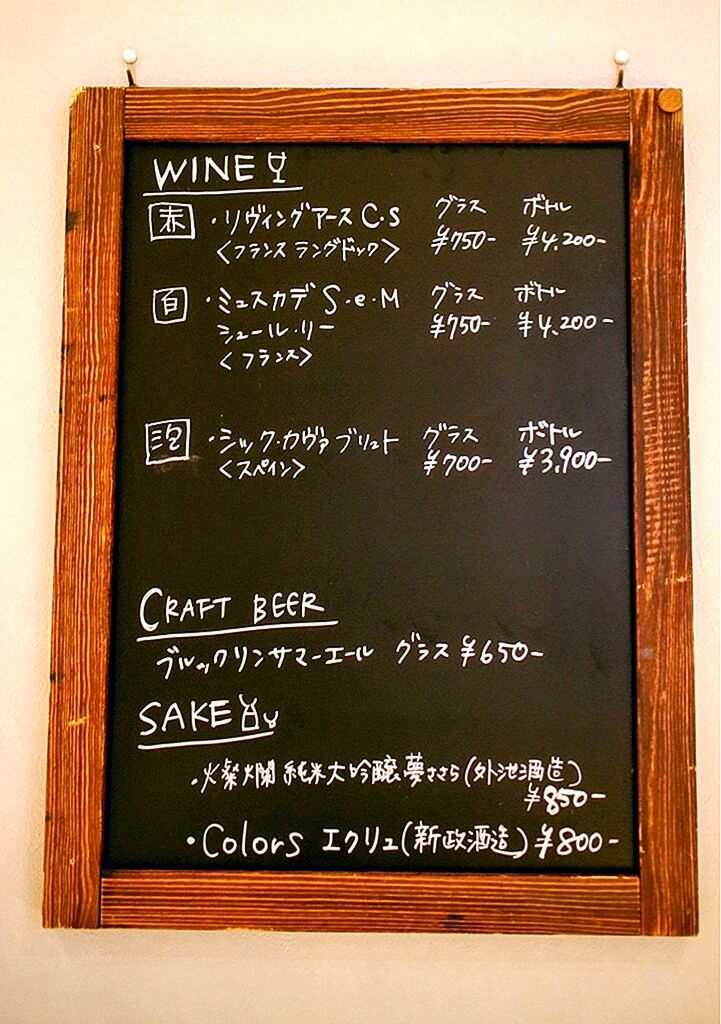 WINE
赤 ・リヴィングアース C・S グラス ボトル
<フランス ラングドック> ¥750- ¥4.200-
白 ・ミュスカデ S・e・M グラス ボトル
シュール・リー ¥750- ¥4.200-
<フランス>
泡 ・シック・カヴァ ブリュト グラス ボトル
<スペイン> ¥700- ¥3.900-
CRAFT BEER
ブルックリンサマーエール グラス ¥650-
SAKE
・燦爛 純米大吟醸 夢ささら(外池酒造)
¥850-
・Colors エクリュ(新政酒造) ¥800-